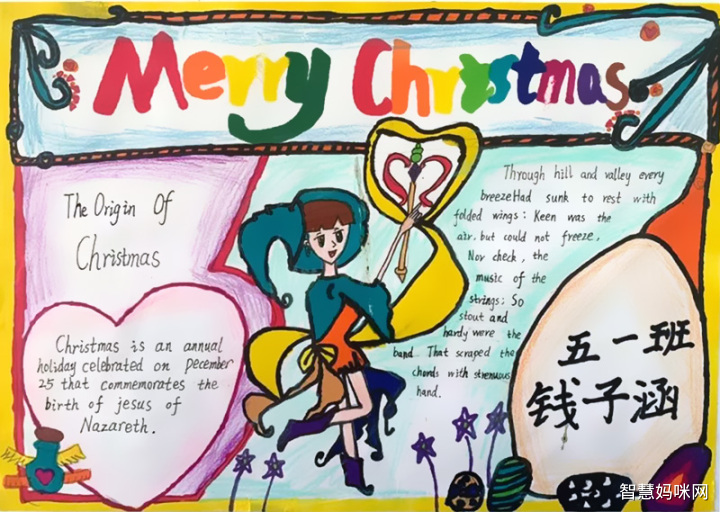 Merry Christmas
The Origin Of
Christmas
Christmas is an annual
holiday celebrated on pecember
25 that commemorates the
birth of jesus of
Nazareth.
Through hill and valley every
breezeHad sunk to rest with
folded wings: Keen was the
air. but could not freeze,
Nor check, the
music of the
strings; So
stout and
hardy were the
band That scraped the
chords with strenuous
hand.
五一班
钱子涵
智慧妈咪网